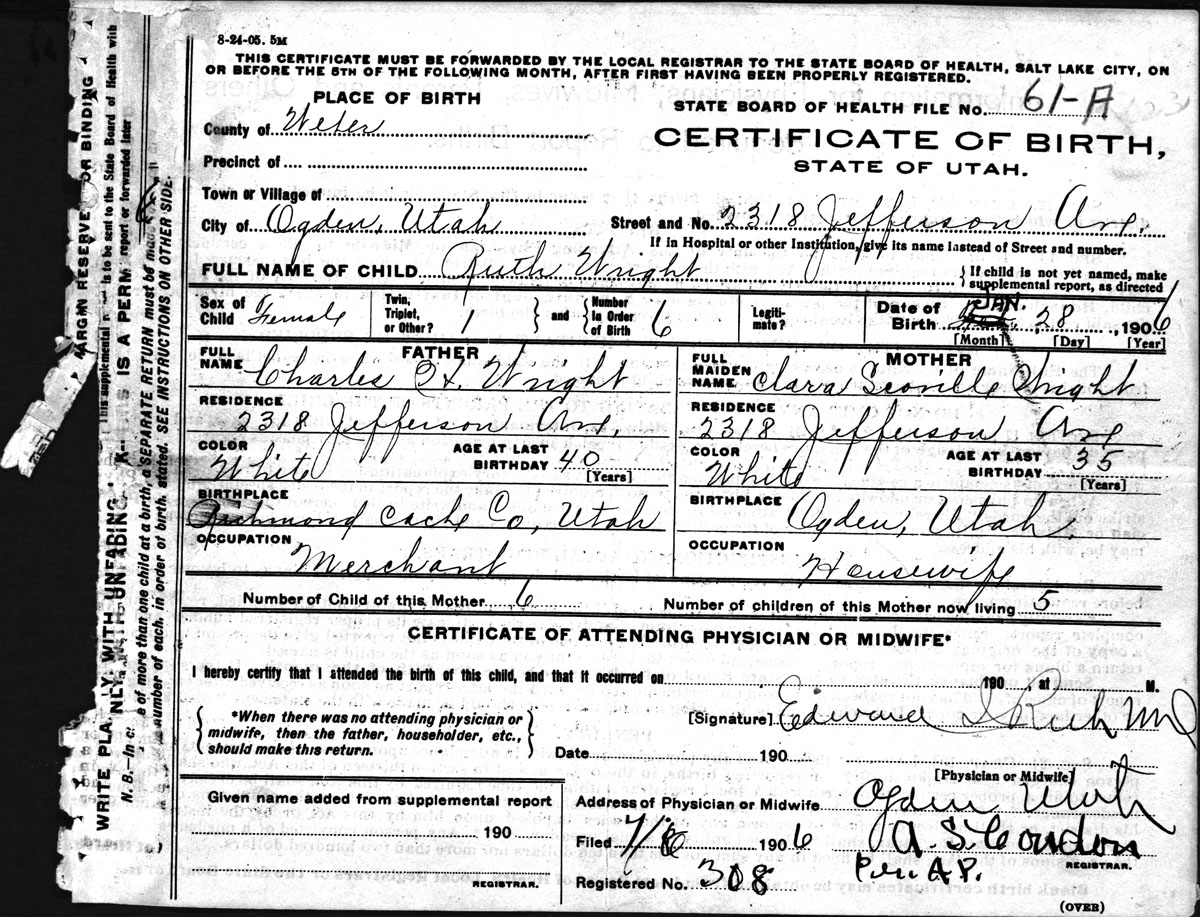 8-24-05. 5M
THIS CERTIFICATE MUST BE FORWARDED BY THE LOCAL REGISTRAR TO THE STATE BOARD OF HEALTH, SALT LAKE CITY, ON
OR BEFORE THE 5TH OF THE FOLLOWING MONTH, AFTER FIRST HAVING BEEN PROPERLY REGISTERED.
PLACE OF BIRTH
STATE BOARD OF HEALTH FILE No. 61-A
County of Weber
CERTIFICATE OF BIRTH,
STATE OF UTAH.
Precinct of
Town or Village of
City of Ogden, Utah Street and No. 2318 Jefferson Ave.
If in Hospital or other Institution, give its name instead of Street and number.
FULL NAME OF CHILD Ruth Wright
If child is not yet named, make
supplemental report, as directed
Sex of Child Female Twin, Triplet, or Other? 1 and Number in Order of Birth 6 Legiti-mate? Date of Birth JAN. 28, 1906
[Month] [Day] [Year]
FATHER MOTHER
FULL NAME Charles H. Wright FULL MAIDEN NAME Clara Scoville Wright
RESIDENCE 2318 Jefferson Ave. RESIDENCE 2318 Jefferson Ave
COLOR White AGE AT LAST BIRTHDAY 40 [Years] COLOR White AGE AT LAST BIRTHDAY 35 [Years]
BIRTHPLACE Richmond Cache Co, Utah BIRTHPLACE Ogden, Utah.
OCCUPATION Merchant OCCUPATION Housewife
Number of Child of this Mother 6 Number of children of this Mother now living 5
CERTIFICATE OF ATTENDING PHYSICIAN OR MIDWIFE*
I hereby certify that I attended the birth of this child, and that it occurred on 190 , at M.
*When there was no attending physician or
midwife, then the father, householder, etc.,
should make this return.
[Signature] Edward I Rich MD
Date 190
[Physician or Midwife]
Given name added from supplemental report
190
REGISTRAR.
Address of Physician or Midwife Ogden Utah
Filed 7/6 1906 A. S. Condon
REGISTRAR.
Registered No. 308 Per A.P.
(OVER)
MARGIN RESERVED FOR BINDING
WRITE PLAINLY, WITH UNFADING
IS A PERM
SEPARATE RETURN must be made
of more than one child at a birth, a
number of each, in order of birth, stated. SEE INSTRUCTIONS ON OTHER SIDE.
to be sent to the State Board of Health with
report or forwarded later